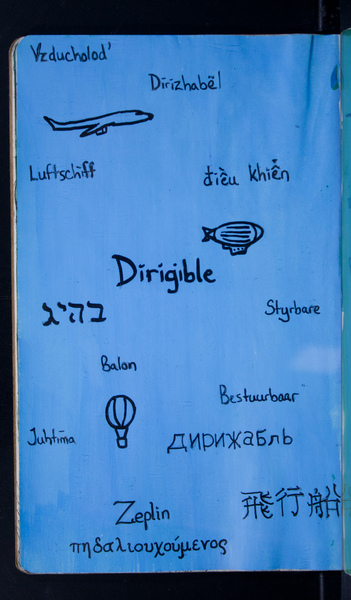 Vzducholod'
Dirizhabël
Luftschiff
điều khiển
Dirigible
בהיג
Styrbare
Balon
Bestuurbaar
Juhtima
ДИРИЖАБЛЬ
飛行船
Zeplin
πηδαλιουχούμενος